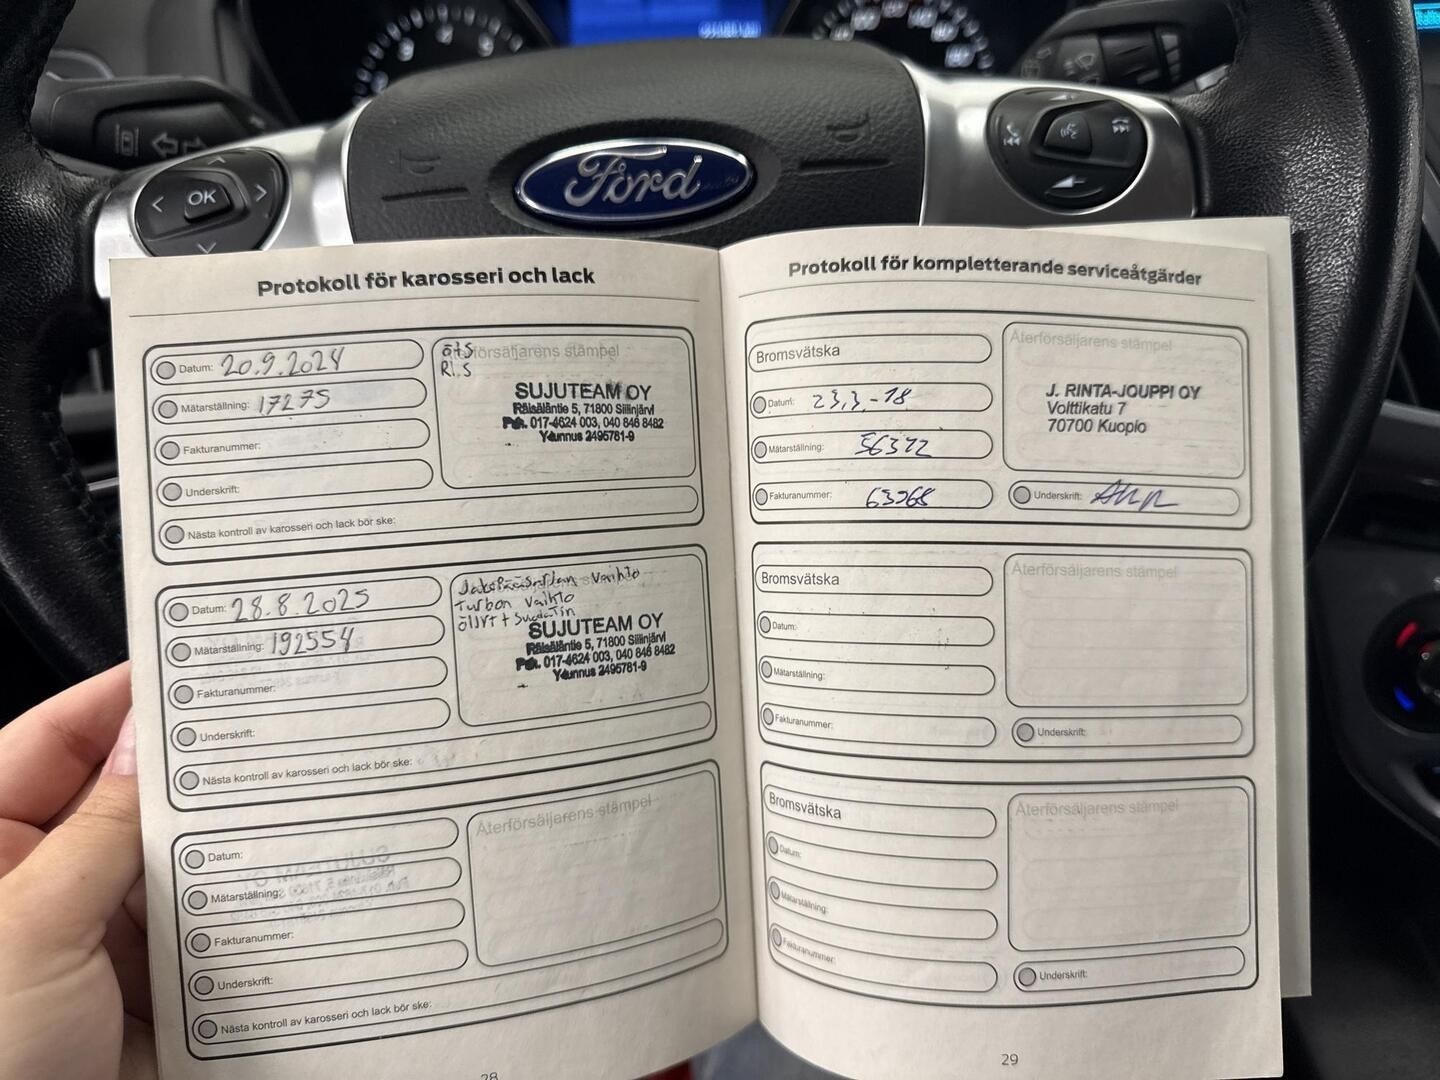 OK
Ford
Protokoll för karosseri och lack
Datum: 20.9.2024
Mätarställning: 17275
Fakturanummer:
Underskrift:
Nästa kontroll av karosseri och lack bör ske:
Återförsäljarens stämpel
ö+S
SUJUTEAM OY
Räisäläntie 5, 71800 Siilinjärvi
Puh. 017-4624 003, 040 846 8482
Y-tunnus 2495781-9
Datum: 28.8.2025
Mätarställning: 192554
Fakturanummer:
Underskrift:
Nästa kontroll av karosseri och lack bör ske:
Jakopääsarjan vaihto
Turbon vaihto
öljyt + Suodatin
SUJUTEAM OY
Räisäläntie 5, 71800 Siilinjärvi
Puh. 017-4624 003, 040 846 8482
Y-tunnus 2495781-9
Datum:
Mätarställning:
Fakturanummer:
Underskrift:
Nästa kontroll av karosseri och lack bör ske:
Återförsäljarens stämpel
28
Protokoll för kompletterande serviceåtgärder
Bromsvätska
Datum: 23.3.-18
Mätarställning: 56322
Fakturanummer: 63268
Återförsäljarens stämpel
J. RINTA-JOUPPI OY
Volttikatu 7
70700 Kuopio
Underskrift:
Bromsvätska
Datum:
Mätarställning:
Fakturanummer:
Återförsäljarens stämpel
Underskrift:
Bromsvätska
Datum:
Mätarställning:
Fakturanummer:
Återförsäljarens stämpel
Underskrift:
29